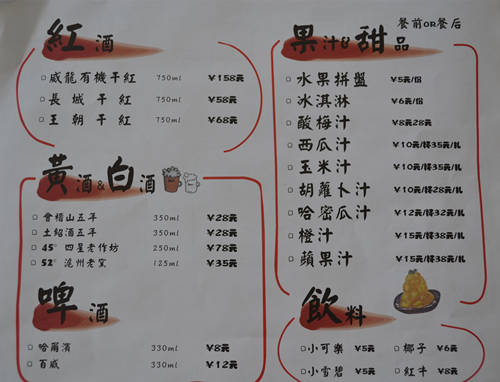 紅酒
□ 威龍有機干紅 750ml ¥158元
□ 長城干紅 750ml ¥58元
□ 王朝干紅 750ml ¥68元
黃酒&白酒
□ 會稽山五年 350ml ¥28元
□ 土紹酒五年 350ml ¥28元
□ 45° 四星老作坊 250ml ¥78元
□ 52° 瀘州老窖 125ml ¥35元
啤酒
□ 哈爾濱 330ml ¥8元
□ 百威 330ml ¥12元
餐前or餐后
果汁&甜品
□ 水果拼盤 ¥5元/份
□ 冰淇淋 ¥6元/份
□ 酸梅汁 ¥8元28元
□ 西瓜汁 ¥10元/35元/扎
□ 玉米汁 ¥10元/35元/扎
□ 胡蘿卜汁 ¥10元/28元/扎
□ 哈密瓜汁 ¥12元/32元/扎
□ 橙汁 ¥15元/38元/扎
□ 蘋果汁 ¥15元/38元/扎
飲料
□ 小可樂 ¥5元 □ 椰子 ¥6元
□ 小雪碧 ¥5元 □ 紅牛 ¥8元